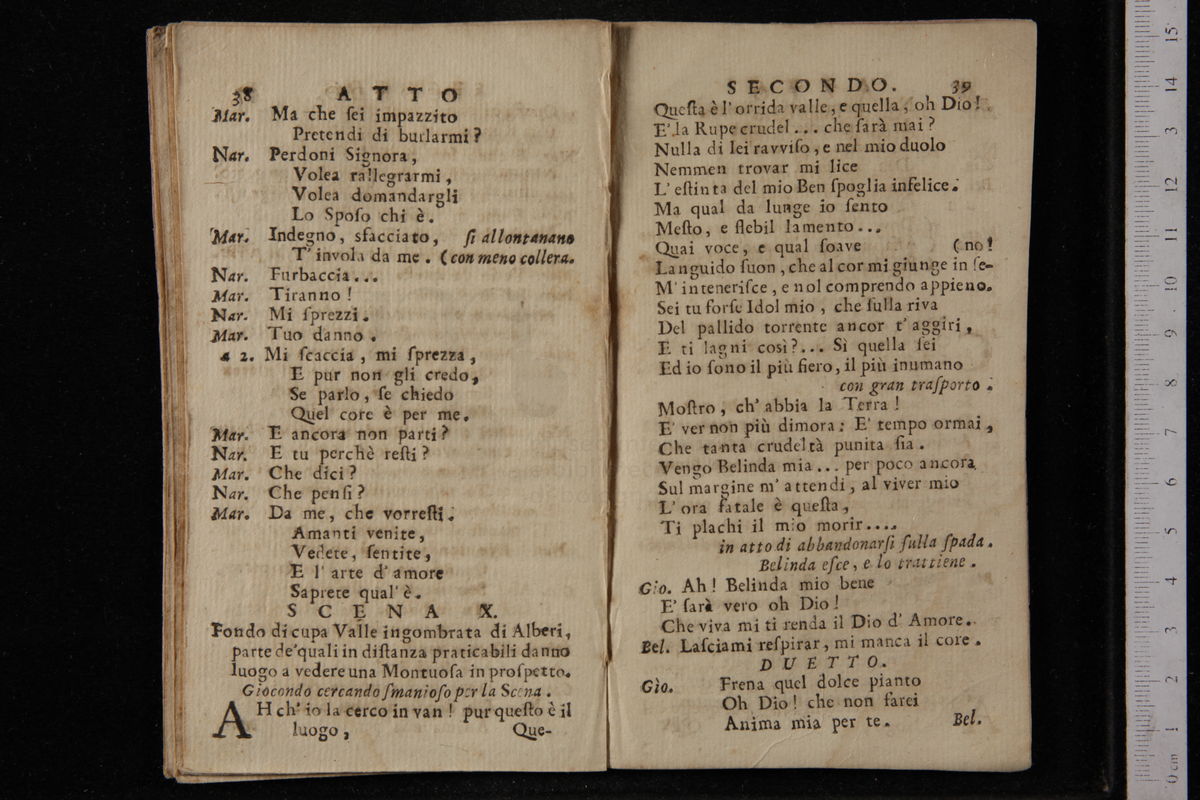 38 ATTO
Mar. Ma che ſei impazzito
Pretendi di burlarmi?
Nar. Perdoni Signora,
Volea rallegrarmi,
Volea domandargli
Lo Spoſo chi è.
Mar. Indegno, sfacciato, ſi allontanano
T' invola da me. (con meno collera.
Nar. Furbaccia...
Mar. Tiranno!
Nar. Mi ſprezzi.
Mar. Tuo danno.
a 2. Mi ſcaccia, mi ſprezza,
E pur non gli credo,
Se parlo, ſe chiedo
Quel core è per me.
Mar. E ancora non parti?
Nar. E tu perchè reſti?
Mar. Che dici?
Nar. Che penſi?
Mar. Da me, che vorreſti.
Amanti venite,
Vedete, ſentite,
E l' arte d' amore
Saprete qual' è.
SCENA X.
Fondo di cupa Valle ingombrata di Alberi,
parte de' quali in diſtanza praticabili danno
luogo a vedere una Montuoſa in proſpetto.
Giocondo cercando ſmanioſo per la Scena.
AH ch' io la cerco in van! pur queſto è il
luogo, Que-
SECONDO. 39
Queſta è l' orrida valle, e quella, oh Dio!
E' la Rupe crudel... che ſarà mai?
Nulla di lei ravviſo, e nel mio duolo
Nemmen trovar mi lice
L' eſtinta del mio Ben ſpoglia infelice.
Ma qual da lunge io ſento
Meſto, e flebil lamento...
Quai voce, e qual ſoave (no!
Languido ſuon, che al cor mi giunge in ſe-
M' inteneriſce, e nol comprendo appieno.
Sei tu forſe Idol mio, che ſulla riva
Del pallido torrente ancor t' aggiri,
E ti lagni così?... Sì quella ſei
Ed io ſono il più fiero, il più inumano
con gran traſporto.
Moſtro, ch' abbia la Terra!
E' ver non più dimora: E' tempo ormai,
Che tanta crudeltà punita ſia.
Vengo Belinda mia... per poco ancora
Sul margine m' attendi, al viver mio
L' ora fatale è queſta,
Ti plachi il mio morir....
in atto di abbandonarſi ſulla ſpada.
Belinda eſce, e lo trattiene.
Gio. Ah! Belinda mio bene
E' ſarà vero oh Dio!
Che viva mi ti renda il Dio d' Amore.
Bel. Laſciami reſpirar, mi manca il core.
DUETTO.
Gio. Frena quel dolce pianto
Oh Dio! che non farei
Anima mia per te. Bel.
0 cm 1 2 3 4 5 6 7 8 9 10 11 12 13 14 15